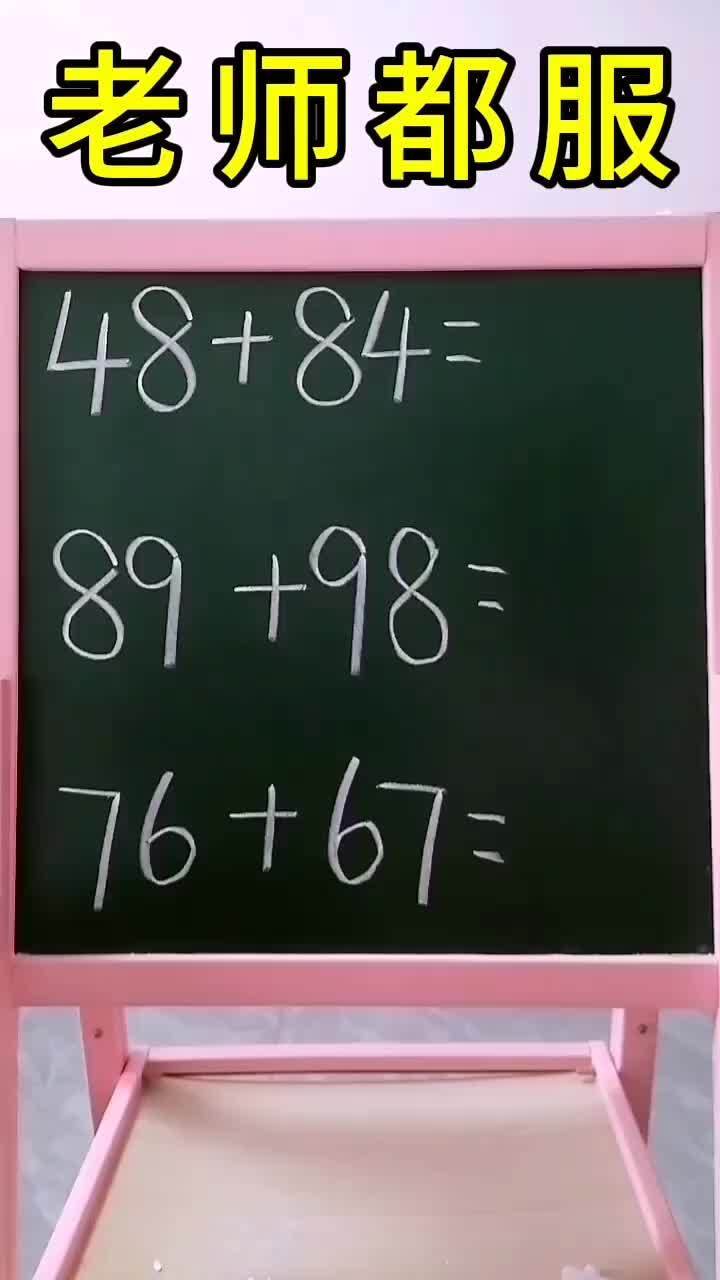 老师都服
48+84=
89+98=
76+67=